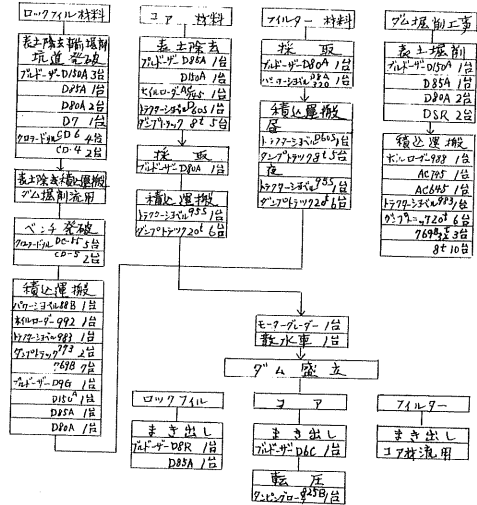 ロックフィル材料
表土除去掘削
坑道発破
ブルドーザーD150A 3台
D85A 1台
D80A 2台
D7 1台
クローラードリルCD6 4台
CD-4 2台
表土除去積込運搬
ダム掘削流用
ベンチ発破
5台
CD-5 2台
積込運搬
パワーショベル88B 1台
ホイルローダー992 1台
トラクターショベル983 1台
ダンプトラック773 2台
769B 7台
ブルドーザーD9G 1台
D150A 1台
D85A 1台
D80A 1台
コア材料
表土除去
ブルドーザーD85A 1台
D150A 1台
ホイルローダAC745 1台
トラクターショベルD60S 1台
ダンプトラック8t 5台
採取
ブルドーザーD80A 1台
積込運搬
トラクターショベル955 1台
ダンプトラック20t 6台
フィルター材料
採取
ブルドーザーD80A 1台
パワーショベル 1台
積込運搬
昼
トラクターショベルD60S 1台
ダンプトラック8t 5台
夜
トラクターショベル955 1台
ダンプトラック20t 6台
ダム掘削工事
表土掘削
ブルドーザーD150A 1台
D85A 1台
D80A 2台
D8R 2台
積込運搬
ホイルローダー988 1台
AC745 1台
AC645 1台
トラクターショベル983 1台
ダンプトラック20t 6台
769B 3台
8t 10台
モーターグレーダー 1台
散水車 1台
ダム盛立
ロックフィル
まき出し
ブルドーザーD8R 1台
D85A 1台
コア
まき出し
ブルドーザーD6C 1台
転圧
タンピングローラ825B 1台
フィルター
まき出し
コア材流用